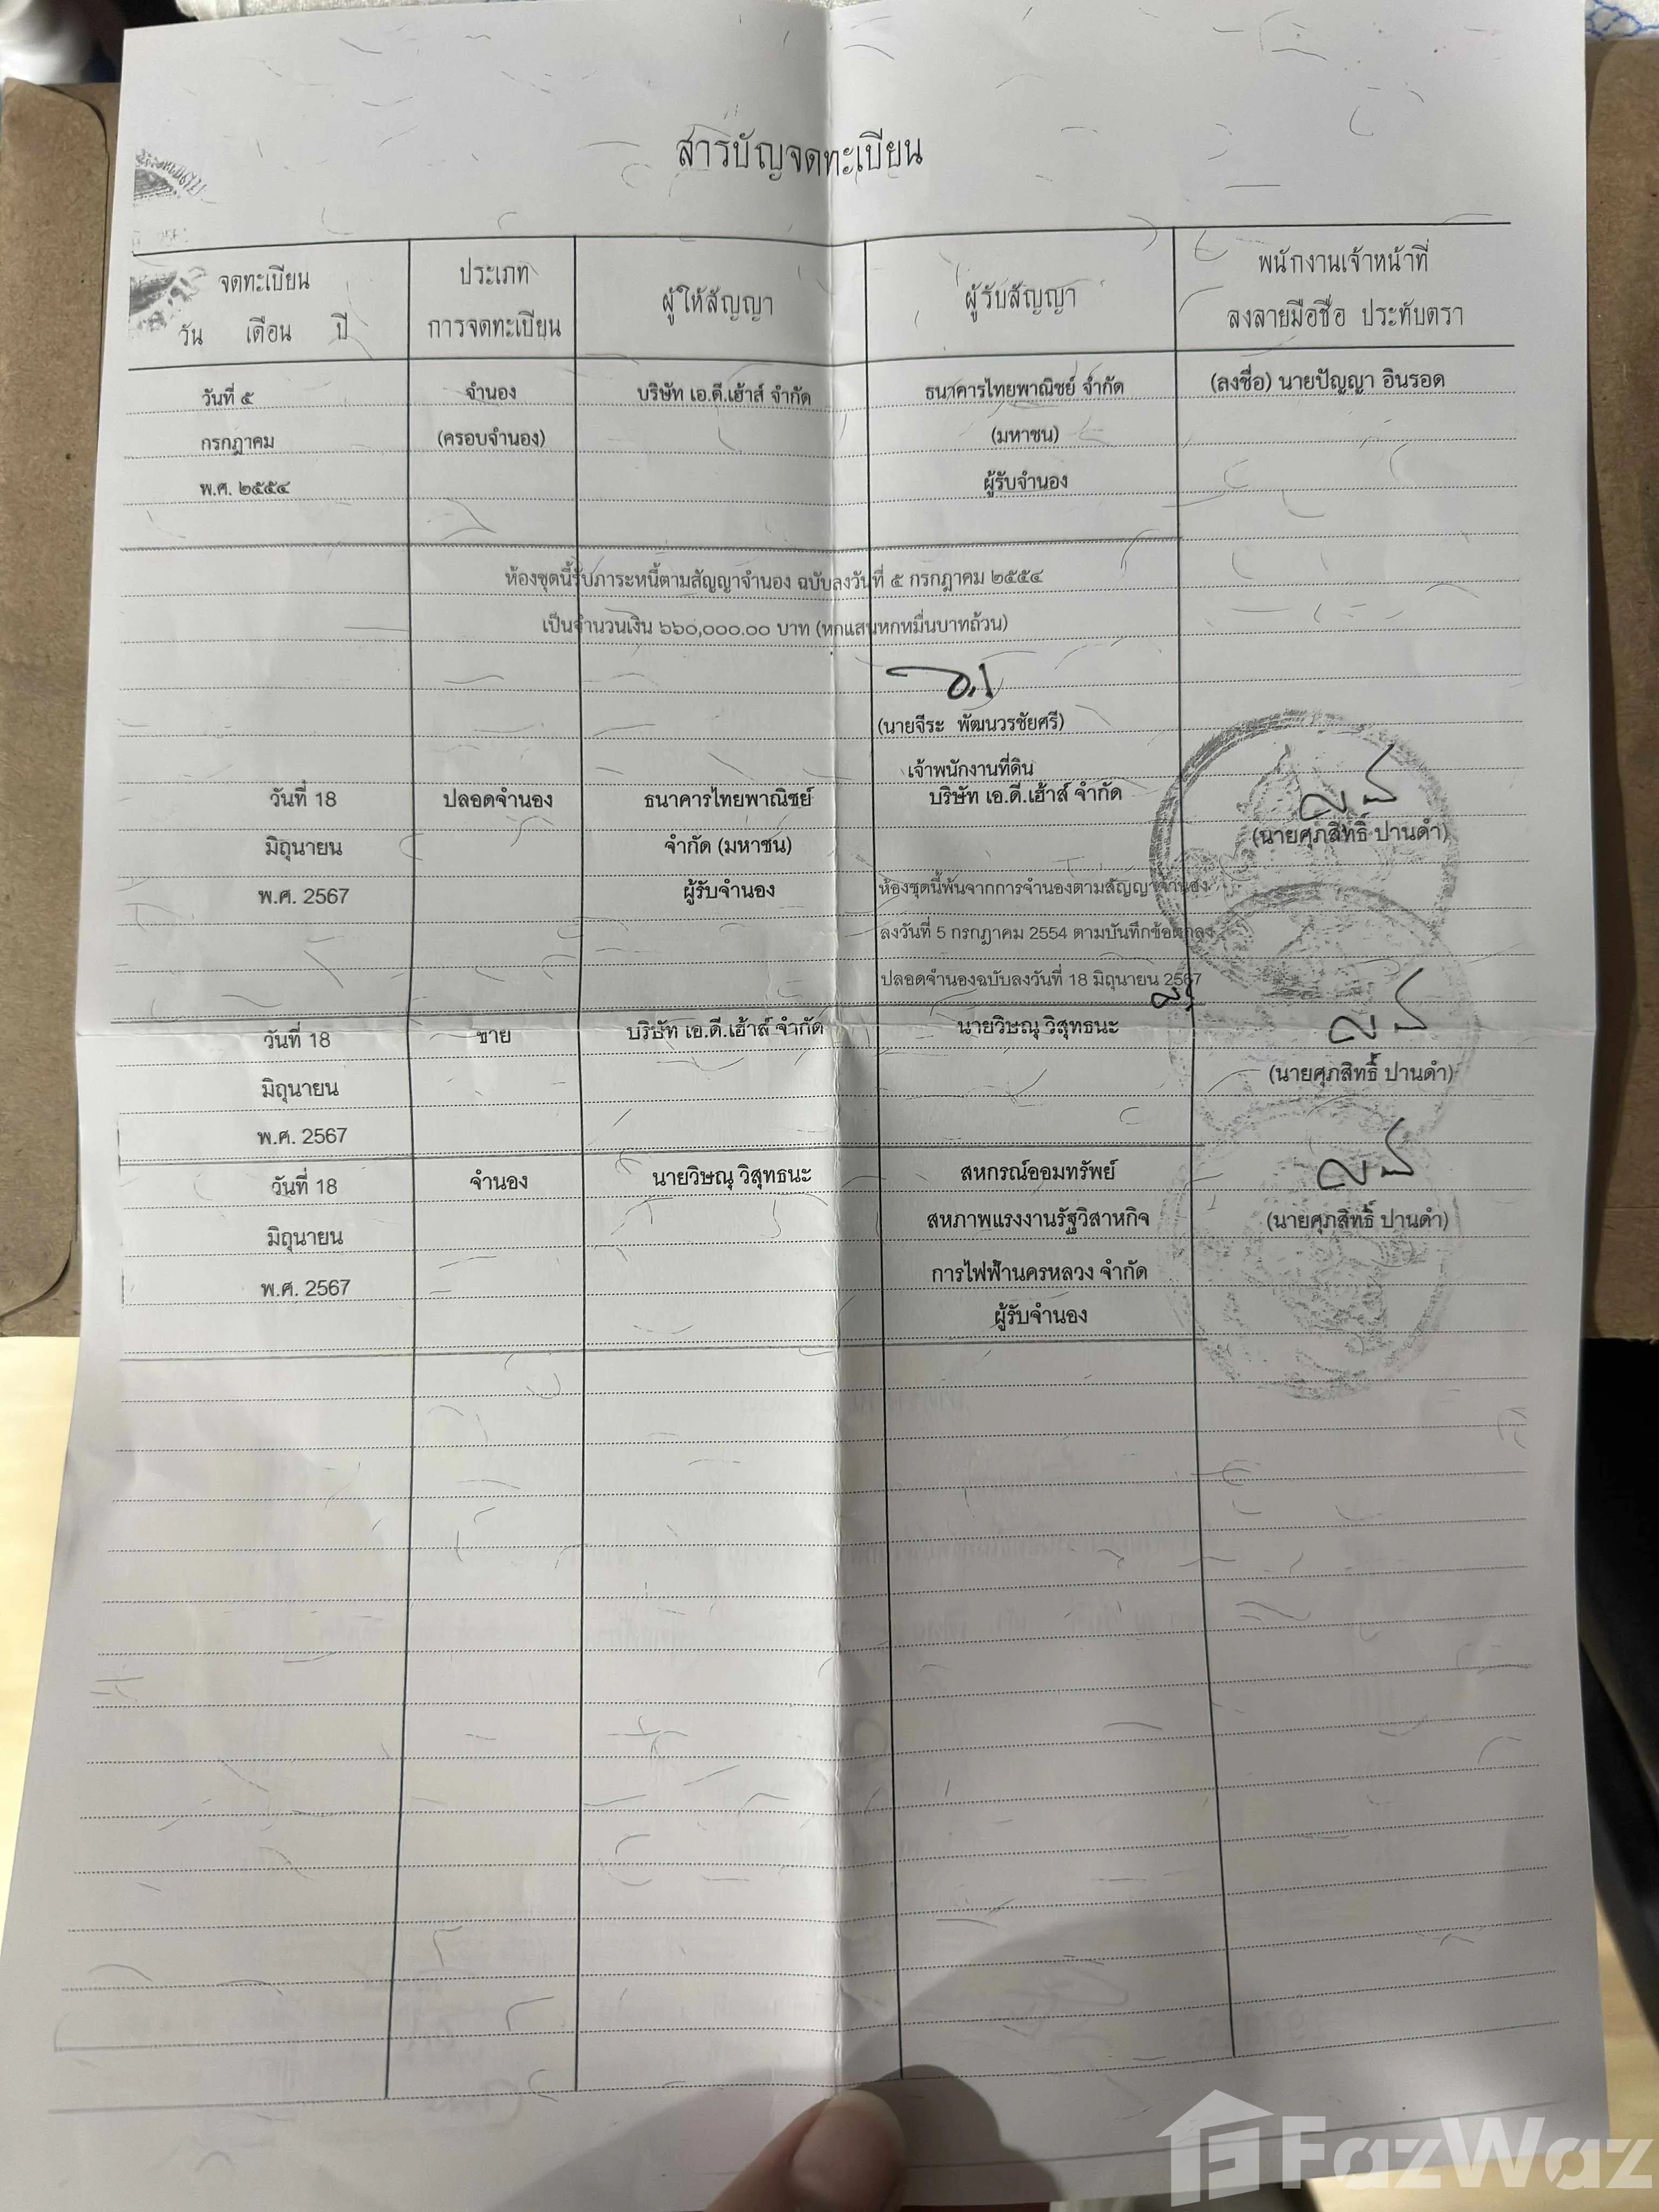 สารบัญจดทะเบียน
จดทะเบียน
วัน เดือน ปี
ประเภท
การจดทะเบียน
ผู้ให้สัญญา
ผู้รับสัญญา
พนักงานเจ้าหน้าที่
ลงลายมือชื่อ ประทับตรา
วันที่ ๕ จำนอง บริษัท เอ.ดี.เฮ้าส์ จำกัด ธนาคารไทยพาณิชย์ จำกัด (ลงชื่อ) นายปัญญา อินรอด
กรกฎาคม (ครอบจำนอง) (มหาชน)
พ.ศ. ๒๕๕๔ ผู้รับจำนอง
ห้องชุดนี้รับภาระหนี้ตามสัญญาจำนอง ฉบับลงวันที่ ๕ กรกฎาคม ๒๕๕๔
เป็นจำนวนเงิน ๖๖๐,๐๐๐.๐๐ บาท (หกแสนหกหมื่นบาทถ้วน)
(นายจีระ พัฒนวรชัยศรี)
เจ้าพนักงานที่ดิน
วันที่ 18 ปลอดจำนอง ธนาคารไทยพาณิชย์ บริษัท เอ.ดี.เฮ้าส์ จำกัด
มิถุนายน จำกัด (มหาชน) (นายศุภสิทธิ์ ปานดำ)
พ.ศ. 2567 ผู้รับจำนอง ห้องชุดนี้พ้นจากการจำนองตามสัญญาจำนอง
ลงวันที่ 5 กรกฎาคม 2554 ตามบันทึกข้อตกลง
ปลอดจำนองฉบับลงวันที่ 18 มิถุนายน 2567
วันที่ 18 ขาย บริษัท เอ.ดี.เฮ้าส์ จำกัด นายวิษณุ วิสุทธนะ
มิถุนายน (นายศุภสิทธิ์ ปานดำ)
พ.ศ. 2567
วันที่ 18 จำนอง นายวิษณุ วิสุทธนะ สหกรณ์ออมทรัพย์
มิถุนายน สหภาพแรงงานรัฐวิสาหกิจ (นายศุภสิทธิ์ ปานดำ)
พ.ศ. 2567 การไฟฟ้านครหลวง จำกัด
ผู้รับจำนอง
FazWaz